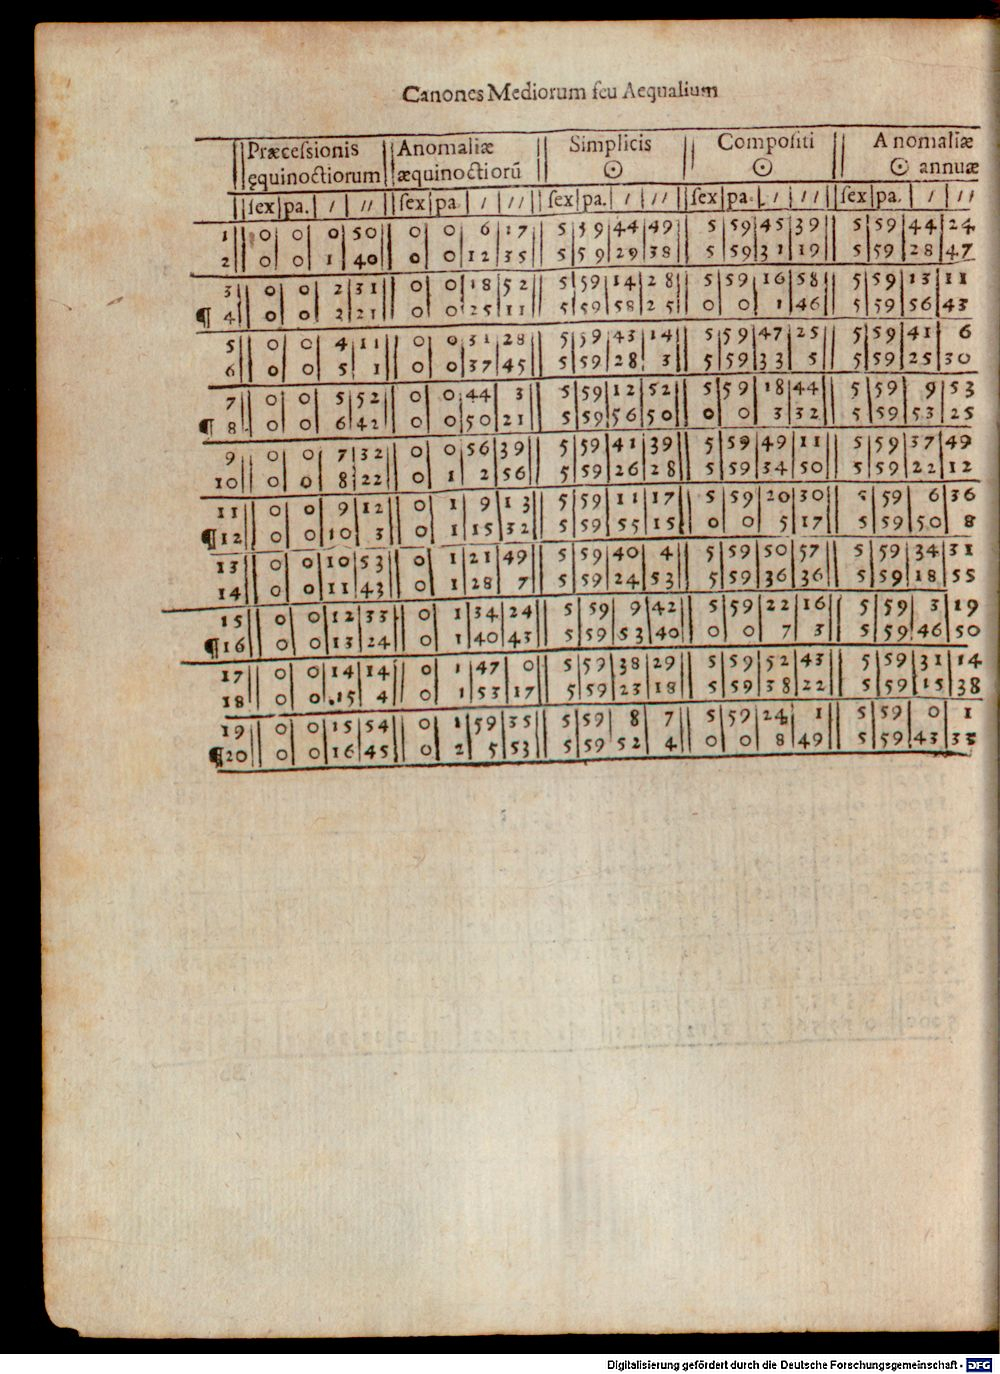 Canones Mediorum seu Aequalium
Præcessionis Anomaliæ Simplicis Compositi Anomaliæ
ęquinoctiorum æquinoctiorū ☉ ☉ ☉ annuæ
sex pa. / // sex pa / // sex pa. / // sex pa. / // sex pa. / //
1 0 0 0 50 0 0 6 17 5 59 44 49 5 59 45 39 5 59 44 24
2 0 0 1 40 0 0 12 35 5 59 29 38 5 59 31 19 5 59 28 47
3 0 0 2 31 0 0 18 52 5 59 14 28 5 59 16 58 5 59 13 11
¶ 4 0 0 2 21 0 0 25 11 5 59 58 25 0 0 1 46 5 59 56 43
5 0 0 4 11 0 0 31 28 5 59 43 14 5 59 47 25 5 59 41 6
6 0 0 5 1 0 0 37 45 5 59 28 3 5 59 33 5 5 59 25 30
7 0 0 5 52 0 0 44 3 5 59 12 52 5 59 18 44 5 59 9 53
¶ 8 0 0 6 42 0 0 50 21 5 59 56 50 0 0 3 32 5 59 53 25
9 0 0 7 32 0 0 56 39 5 59 41 39 5 59 49 11 5 59 37 49
10 0 0 8 22 0 1 2 56 5 59 26 28 5 59 34 50 5 59 22 12
11 0 0 9 12 0 1 9 13 5 59 11 17 5 59 20 30 5 59 6 36
¶12 0 0 10 3 0 1 15 32 5 59 55 15 0 0 5 17 5 59 50 8
13 0 0 10 53 0 1 21 49 5 59 40 4 5 59 50 57 5 59 34 31
14 0 0 11 43 0 1 28 7 5 59 24 53 5 59 36 36 5 59 18 55
15 0 0 12 33 0 1 34 24 5 59 9 42 5 59 22 16 5 59 3 19
¶16 0 0 13 24 0 1 40 43 5 59 53 40 0 0 7 3 5 59 46 50
17 0 0 14 14 0 1 47 0 5 59 38 29 5 59 52 43 5 59 31 14
18 0 0 15 4 0 1 53 17 5 59 23 18 5 59 38 22 5 59 15 38
19 0 0 15 54 0 1 59 35 5 59 8 7 5 59 24 1 5 59 0 1
¶20 0 0 16 45 0 2 5 53 5 59 52 4 0 0 8 49 5 59 43 33
Digitalisierung gefördert durch die Deutsche Forschungsgemeinschaft - DFG